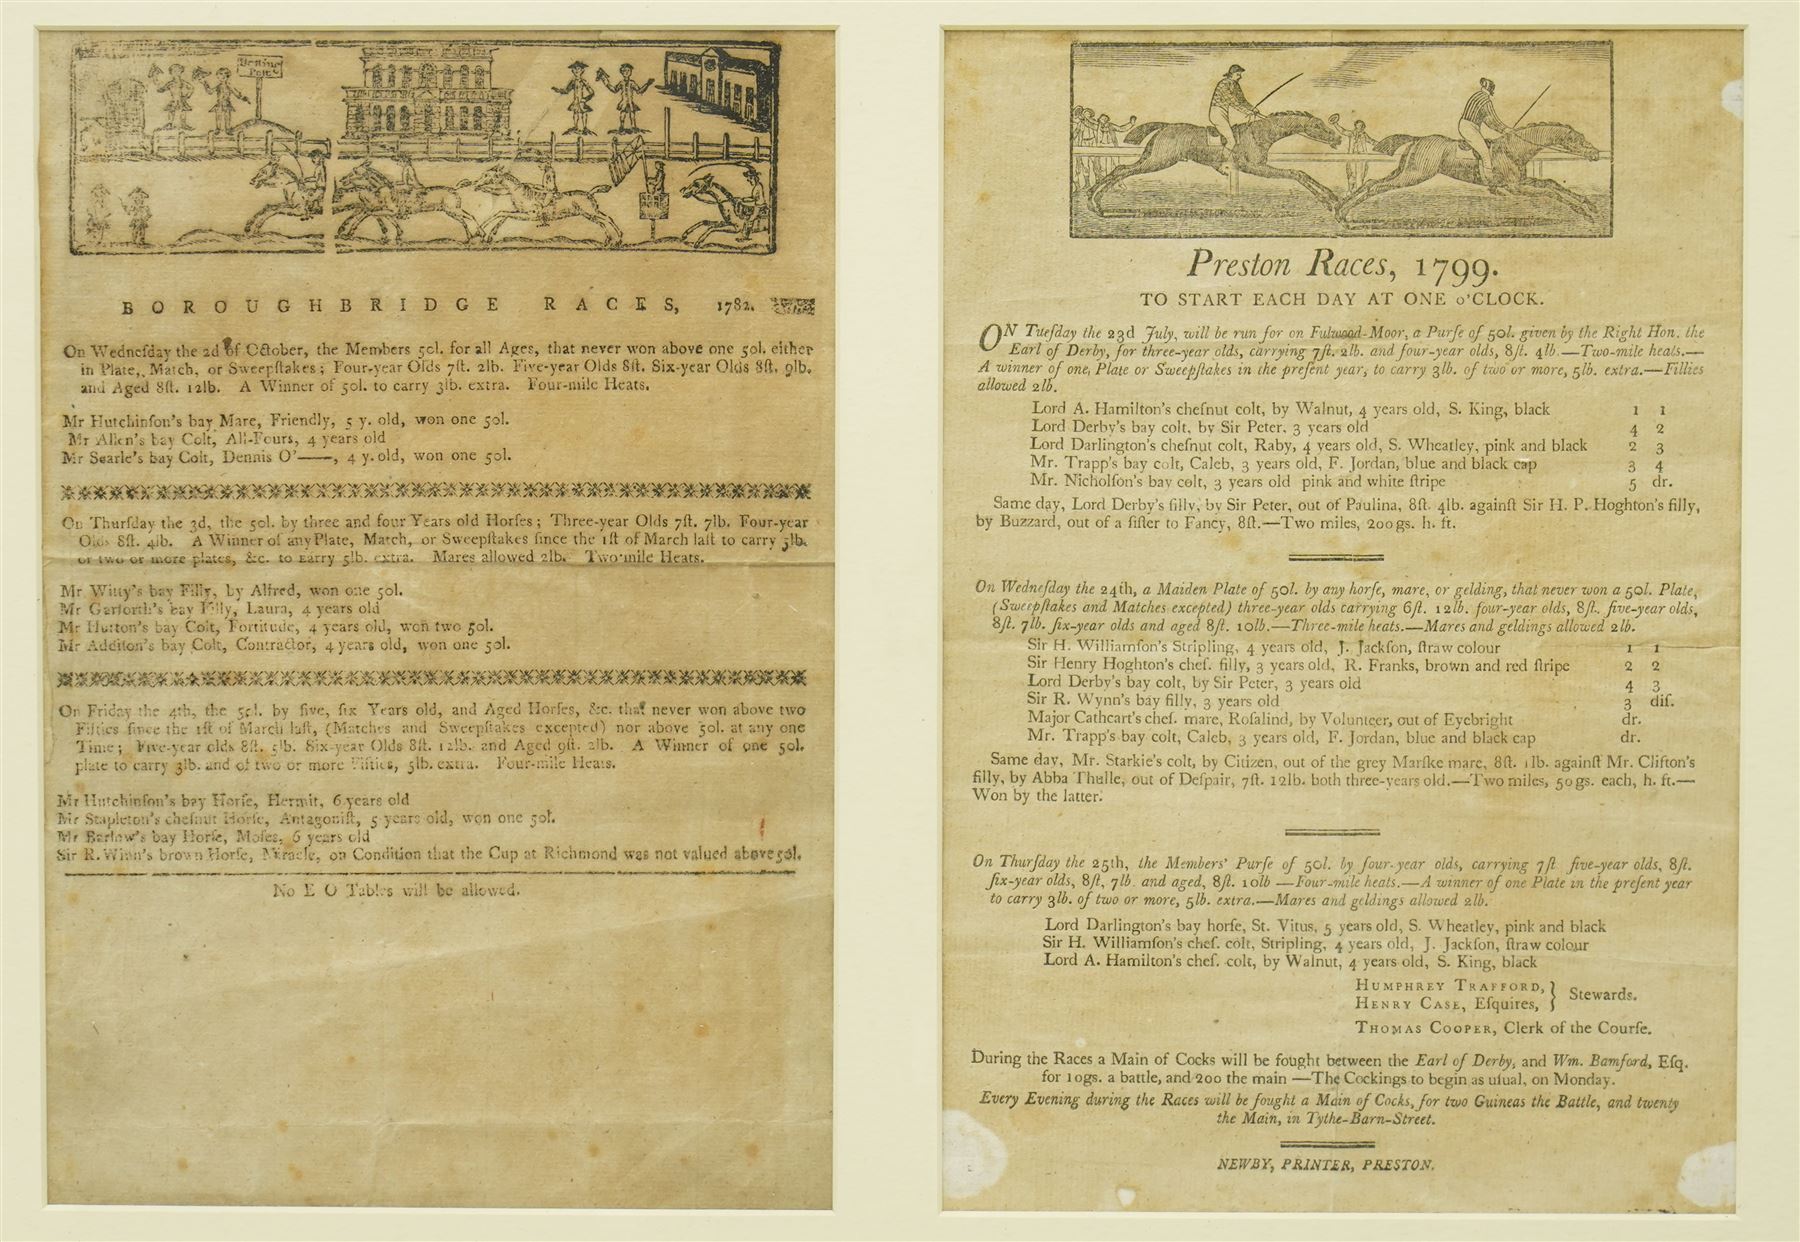 Betting
Post
BOROUGHBRIDGE RACES, 1782.
On Wedneſday the 2d of October, the Members 50l. for all Ages, that never won above one 50l. either
in Plate, Match, or Sweepſtakes; Four-year Olds 7ſt. 2lb. Five-year Olds 8ſt. Six-year Olds 8ſt. 9lb.
and Aged 8ſt. 12lb. A Winner of 50l. to carry 3lb. extra. Four-mile Heats.
Mr Hutchinſon's bay Mare, Friendly, 5 y. old, won one 50l.
Mr Allen's bay Colt, All-Fours, 4 years old
Mr Searle's bay Colt, Dennis O'——, 4 y. old, won one 50l.
On Thurſday the 3d, the 50l. by three and four Years old Horſes; Three-year Olds 7ſt. 7lb. Four-year
Olds 8ſt. 4lb. A Winner of any Plate, Match, or Sweepſtakes ſince the 1ſt of March laſt to carry 3lb.
or two or more plates, &c. to carry 5lb. extra. Mares allowed 2lb. Two-mile Heats.
Mr Witty's bay Filly, by Alfred, won one 50l.
Mr Garforth's bay Filly, Laura, 4 years old
Mr Hutton's bay Colt, Fortitude, 4 years old, won two 50l.
Mr Additon's bay Colt, Contractor, 4 years old, won one 50l.
On Friday the 4th, the 50l. by five, ſix Years old, and Aged Horſes, &c. that never won above two
Fifties ſince the 1ſt of March laſt, (Matches and Sweepſtakes excepted) nor above 50l. at any one
Time; Five-year olds 8ſt. 5lb. Six-year Olds 8ſt. 12lb. and Aged 9ſt. 2lb. A Winner of one 50l.
plate to carry 3lb. and of two or more Fifties, 5lb. extra. Four-mile Heats.
Mr Hutchinſon's bay Horſe, Hermit, 6 years old
Mr Stapleton's cheſnut Horſe, Antagoniſt, 5 years old, won one 50l.
Mr Barlow's bay Horſe, Moſes, 6 years old
Sir R. Winn's brown Horſe, Miracle, on Condition that the Cup at Richmond was not valued above 50l.
No E O Tables will be allowed.
Preston Races, 1799.
TO START EACH DAY AT ONE O'CLOCK.
ON Tueſday the 23d July, will be run for on Fulwood-Moor, a Purſe of 50l. given by the Right Hon. the
Earl of Derby, for three-year olds, carrying 7ſt. 2lb. and four-year olds, 8ſt. 4lb.—Two-mile heats.—
A winner of one, Plate or Sweepſtakes in the preſent year, to carry 3lb. of two or more, 5lb. extra.—Fillies
allowed 2lb.
Lord A. Hamilton's cheſnut colt, by Walnut, 4 years old, S. King, black 1 1
Lord Derby's bay colt, by Sir Peter, 3 years old 4 2
Lord Darlington's cheſnut colt, Raby, 4 years old, S. Wheatley, pink and black 2 3
Mr. Trapp's bay colt, Caleb, 3 years old, F. Jordan, blue and black cap 3 4
Mr. Nicholſon's bay colt, 3 years old pink and white ſtripe 5 dr.
Same day, Lord Derby's filly, by Sir Peter, out of Paulina, 8ſt. 4lb. againſt Sir H. P. Hoghton's filly,
by Buzzard, out of a ſiſter to Fancy, 8ſt.—Two miles, 200gs. h. ft.
On Wedneſday the 24th, a Maiden Plate of 50l. by any horſe, mare, or gelding, that never won a 50l. Plate,
(Sweepſtakes and Matches excepted) three-year olds carrying 6ſt. 12lb. four-year olds, 8ſt. five-year olds,
8ſt. 7lb. ſix-year olds and aged 8ſt. 10lb.—Three-mile heats.—Mares and geldings allowed 2lb.
Sir H. Williamſon's Stripling, 4 years old, J. Jackſon, ſtraw colour 1 1
Sir Henry Hoghton's cheſ. filly, 3 years old, R. Franks, brown and red ſtripe 2 2
Lord Derby's bay colt, by Sir Peter, 3 years old 4 3
Sir R. Wynn's bay filly, 3 years old 3 diſ.
Major Cathcart's cheſ. mare, Roſalind, by Volunteer, out of Eyebright dr.
Mr. Trapp's bay colt, Caleb, 3 years old, F. Jordan, blue and black cap dr.
Same day, Mr. Starkie's colt, by Citizen, out of the grey Marſke mare, 8ſt. 1lb. againſt Mr. Clifton's
filly, by Abba Thulle, out of Deſpair, 7ſt. 12lb. both three-years old.—Two miles, 50gs. each, h. ft.—
Won by the latter.
On Thurſday the 25th, the Members' Purſe of 50l. by four-year olds, carrying 7ſt five-year olds, 8ſt.
ſix-year olds, 8ſt, 7lb. and aged, 8ſt. 10lb —Four-mile heats.—A winner of one Plate in the preſent year
to carry 3lb. of two or more, 5lb. extra.—Mares and geldings allowed 2lb.
Lord Darlington's bay horſe, St. Vitus, 5 years old, S. Wheatley, pink and black
Sir H. Williamſon's cheſ. colt, Stripling, 4 years old, J. Jackſon, ſtraw colour
Lord A. Hamilton's cheſ. colt, by Walnut, 4 years old, S. King, black
HUMPHREY TRAFFORD, } Stewards.
HENRY CASE, Eſquires,
THOMAS COOPER, Clerk of the Courſe.
During the Races a Main of Cocks will be fought between the Earl of Derby, and Wm. Bamford, Eſq.
for 10gs. a battle, and 200 the main —The Cockings to begin as uſual, on Monday.
Every Evening during the Races will be fought a Main of Cocks, for two Guineas the Battle, and twenty
the Main, in Tythe-Barn-Street.
NEWBY, PRINTER, PRESTON.